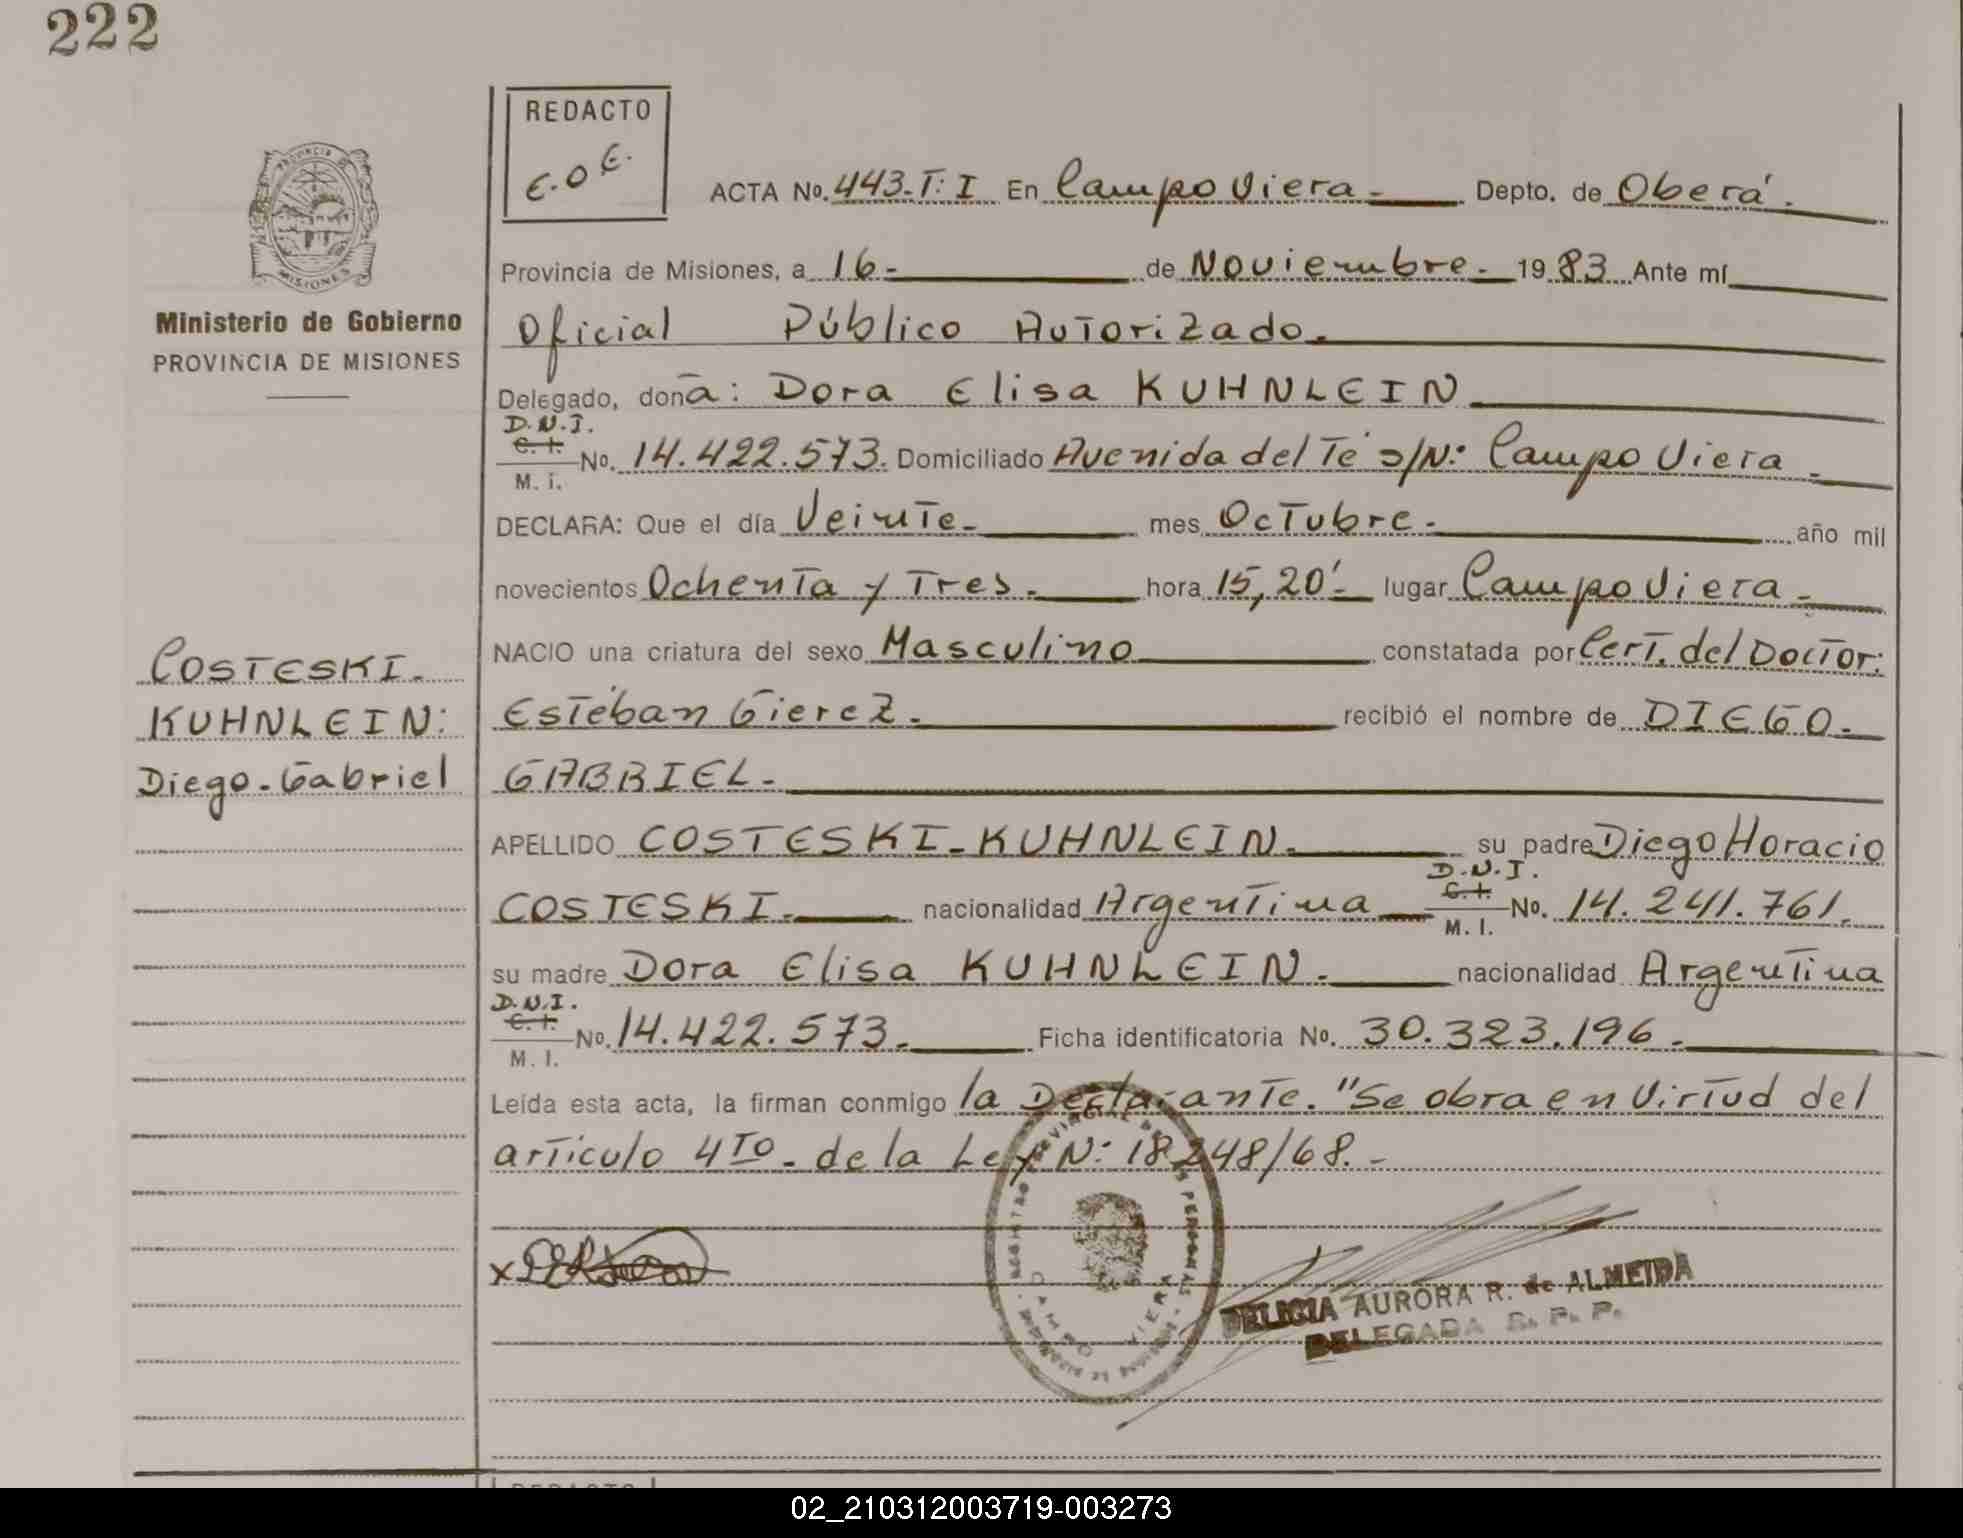 222
REDACTO
E.O.E.
ACTA No. 443.T: I En Campo Viera.- Depto. de Oberá.-
Provincia de Misiones, a 16.- de Noviembre.- 1983 Ante mí
Ministerio de Gobierno
PROVINCIA DE MISIONES
Oficial Público Autorizado.-
Delegado, doña: Dora Elisa KUHNLEIN.-
D.N.I.
C. I.
M. I.
No. 14.422.573. Domiciliado Avenida del Té s/N: Campo Viera.-
DECLARA: Que el día Veinte.- mes Octubre.- año mil
novecientos Ochenta y Tres.- hora 15,20'.- lugar Campo Viera.-
NACIO una criatura del sexo Masculino constatada por Cert. del Doctor:
Estéban Gierez.- recibió el nombre de DIEGO.-
GABRIEL.-
COSTESKI.
KUHNLEIN:
Diego-Gabriel
APELLIDO COSTESKI-KUHNLEIN.- su padre Diego Horacio
COSTESKI.- nacionalidad Argentina
D.N.I.
C. I.
M. I.
No. 14.241.761.
su madre Dora Elisa KUHNLEIN.- nacionalidad Argentina
D.N.I.
C. I.
M. I.
No. 14.422.573.- Ficha identificatoria No. 30.323.196.-
Leída esta acta, la firman conmigo la Declarante. "Se obra en Virtud del
articulo 4TO- de la Ley N: 18248/68.-
CAMPO VIERA
DELICIA AURORA R. de ALMEIDA
DELEGADA R. P. P.
REDACTO
02_210312003719-003273